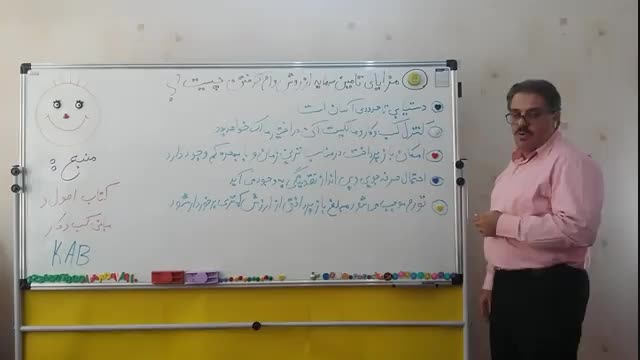 مزایای تامین سرمایه از روش وام گرفتن چیست؟
دستیابی تا حدودی آسان است
کنترل کسب و کار و مالکیت آن در اختیار مالک خواهد بود
امکان بازپرداخت در مناسب ترین زمان و با بهره کم وجود دارد
احتمال صرفه جویی و پس انداز نقدینگی به وجود می آید
تورم موجب می شود مبلغ بازپرداختی از ارزش کمتری برخوردار شود
منبع:
کتاب اصول و
مبانی کسب و کار
KAB